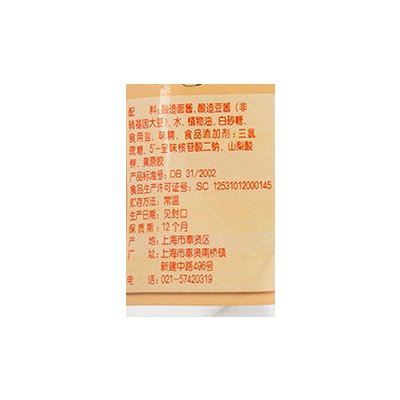 配 料:酿造面酱、酿造豆酱(非
转基因大豆)、水、植物油、白砂糖、
食用盐、味精、食品添加剂:三氯
蔗糖、5'-呈味核苷酸二钠、山梨酸
钾、黄原胶
产品标准号:DB 31/2002
食品生产许可证号: SC 12531012000145
贮存方法:常温
生产日期:见封口
保质期:12个月
产 地:上海市奉贤区
厂 址:上海市奉贤南桥镇
新建中路496号
电 话:021-57420319